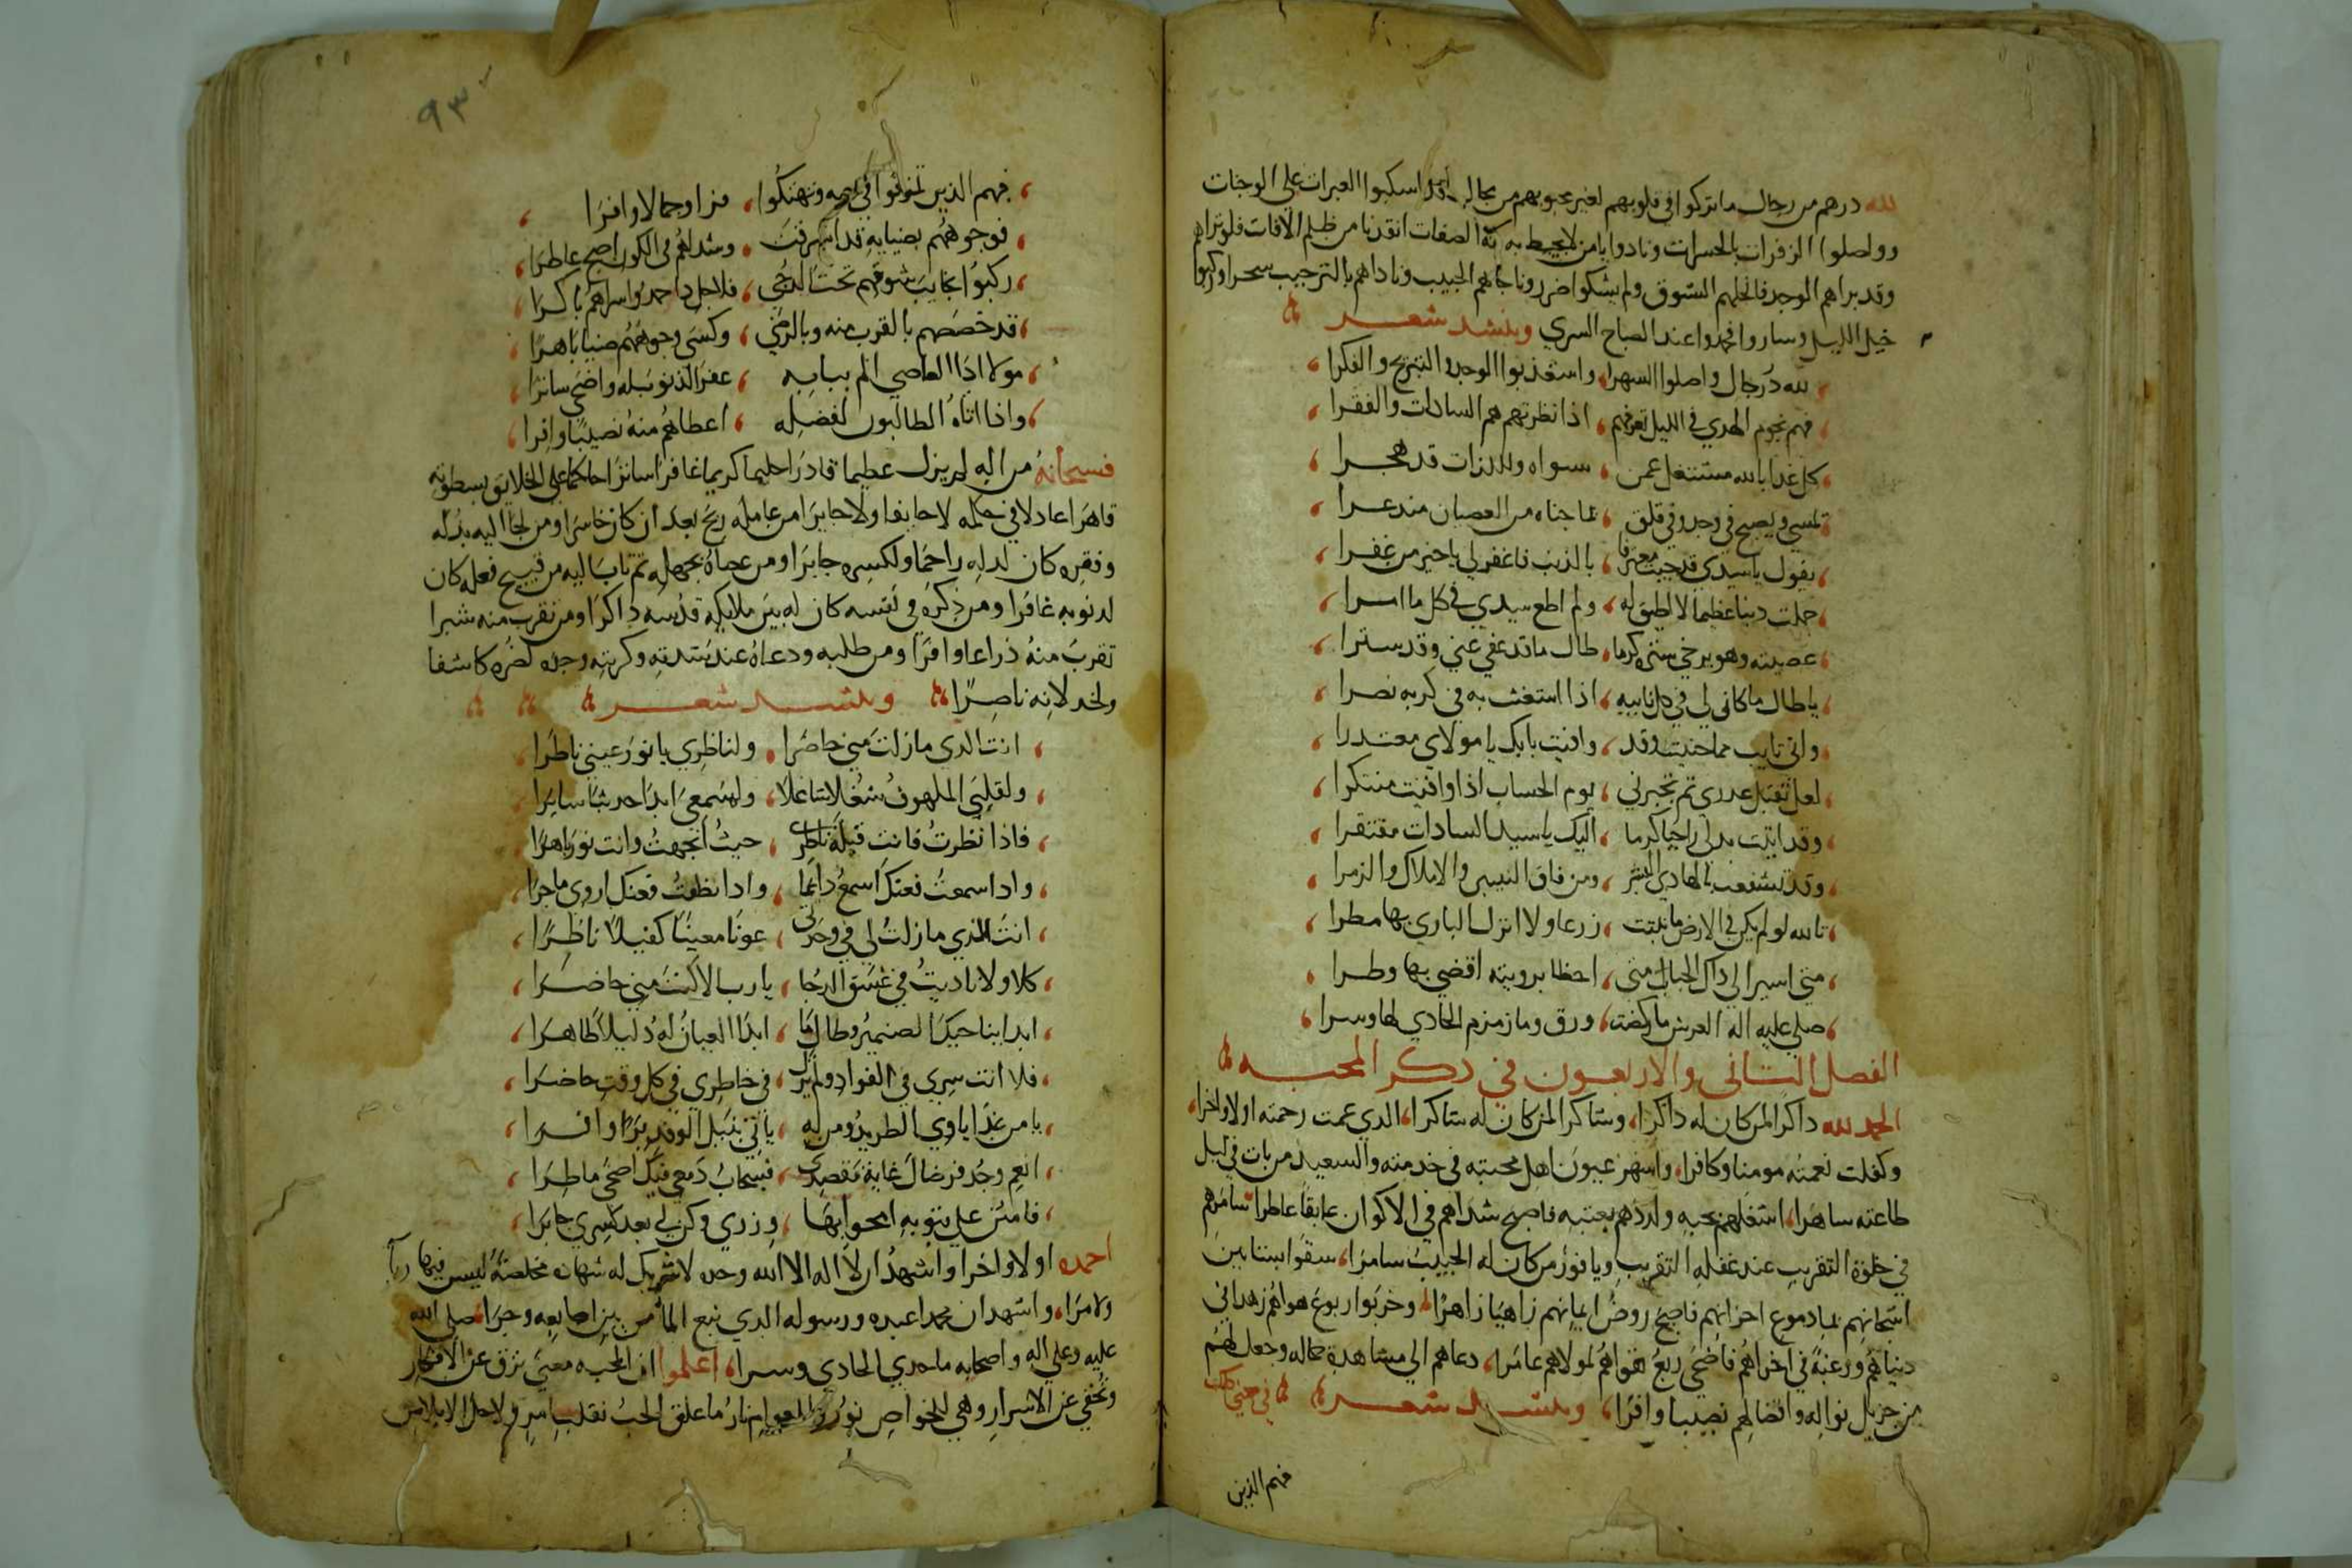 لله درهم من رجال ما تركوا في قلوبهم لغير محبوبهم من مجال اسكبوا العبرات على الوجنات
وواصلوا الزفرات بالحسرات ونادوا يا من لا يحيط به الصفات انقذنا من ظلم الافات فلو تراهم
وقد براهم الوجد فانحلهم الشوق ولم يشكوا ضررا وناجاهم الحبيب وناداهم بالترحيب سحرا وركبوا
خيل الليل وساروا فحمدوا عند الصباح السري وينشد شعر
لله در رجال واصلوا السهرا واستعذبوا الوجد والتبريح والفكرا
فهم نجوم الهدي في الليل تعرفهم اذا نظرتهم هم السادات والفقرا
كل غدا بالله مشتغل عمن سواه وللذات قد هجرا
تمسي ويصبح في وجد وفي قلق مما جناه من العصيان منذعرا
يقول يا سيدي قد جيت معترفا بالذنب فاغفر لي يا خير من غفرا
حملت ذنبا عظيما لا اطيق له ولم اطع سيدي في كل ما امرا
عصيته وهو يرخي ستره كرما طال ما قد عفي عني وقد سترا
يا طال ما كان لي في كل نايبه اذا استغثت به في كربه نصرا
واني تايب مما جنيت وقد وافيت بابك يا مولاي معتذرا
لعل تقبل عذري ثم تجبرني يوم الحساب اذا وافيت منكرا
وقد اتيت بذلي راجيا كرما اليك يا سيد السادات مفتقرا
وقد تشفعت بالهادي البشر ومن فاق النبيين والاملاك والزمرا
تالله لو لم يكن في الارض ما نبتت زرعا ولا انزل الباري بها مطرا
متي اسير الي ذاك الجناب متي احظا برويته اقضي بها وطرا
صلي عليه اله العرش ما ركضت ورق وما زمزم الحادي لها وسرا
الفصل الثاني والاربعون في ذكر المحبه
الحمد لله ذاكرا لمن كان له ذاكرا وشاكرا لمن كان له شاكرا الذي عمت رحمته اولا واخرا
وكفلت نعمته مومنا وكافرا واسهر عيون اهل محبته في خدمته والسعيد من بات في ليل
طاعته ساهرا اشغلهم بحبه ولذذهم بعتبه فاصبح شذاهم في الاكوان عابقا عاطرا سامرهم
في خلوة التقريب عند غفله التقريب ويا فوز من كان له الحبيب سامرا سقوا بساتين
اشجانهم بماء دموع احزانهم فاصبح روض ايمانهم زاهيا زاهرا وخربوا ربوع هواهم زهدا في
دنياهم ورغبة في اخراهم فاضحي ربع تقواهم لمولاهم عامرا دعاهم الي مشاهدة جماله وجعل لهم
من جزيل نواله وافضالهم نصيبا وافرا وينشد شعر في معني ذلك
فهم الذين
٩٣
فهم الذين تمزقوا في حبه وتهتكوا فزا وجمالا وافرا
فوجوههم بضيايه قد اشرقت وشذاهم في الكون اصبح عاطرا
ركبوا نجايب شوقهم تحت الدجي فلاجل ذا حمدوا سراهم باكرا
قد خصصهم بالقرب منه وبالرضي وكسي وجوههم ضيا باهرا
مولا اذا العاصي الم ببابه غفر الذنوب له واضحي ساترا
واذا اتاه الطالبون لفضله اعطاهم منه نصيبا وافرا
فسبحانه من اله لم يزل عظيما قادرا حليما كريما غافرا ساترا حاكما علي الخلايق بسطوته
قاهرا عادلا في حكمه لا حايفا ولا جايرا من عامله ربح بعد ان كان خاسرا ومن لجا اليه بذله
وفقره كان لذله راحما ولكسره جابرا ومن عصاه بجهله ثم تاب اليه من قبيح فعله كان
لذنوبه غافرا ومن ذكره في نفسه كان له بين ملايكه قدسه ذاكرا ومن تقرب منه شبرا
تقرب منه ذراعا وافرا ومن طلبه ودعاه عند شدته وكربته وجده لضره كاشفا
ولخذلانه ناصرا وينشد شعر
انت الذي ما زلت مني حاضرا ولناظري يا نور عيني ناظرا
ولقلبي الملهوف شغلا شاغلا ولمسمعي ابدا حديثا سايرا
فاذا نظرت فانت قبلة ناظري حيث اتجهت وانت نور باهرا
واذا سمعت فعنك اسمع دايما واذا نطقت فعنك اروي ما جرا
انت الذي ما زلت لي في وحدتي عونا معينا كفيلا ناظرا
كلا ولا ناديت في غسق الدجا يا رب الا كنت مني حاضرا
ابدا يناجيك الضمير وطال ما ابدا العيان له دليلا ظاهرا
فلا انت سري في الفواد ولم تزل في خاطري في كل وقت حاضرا
يا من غدا ياوي الطريد ومن له ياتي بنيل الوفد برا وافرا
انعم وجد فرضاك غاية مقصدي فسحاب دمعي فيك اضحي ماطرا
فامنن علي بتوبه امحوا بها وزري وكن لي بعد كسري جابرا
احمده اولا واخرا واشهد ان لا اله الا الله وحده لا شريك له شهاده مخلصة ليس فيها ريا
ولا مرا واشهد ان محمدا عبده ورسوله الذي نبع الما من بين اصابعه وجرا صلي الله
عليه وعلي اله واصحابه ما حدي الحادي وسرا اعلموا ان المحبه معني ترق عن الافكار
وتخفي عن الاسرار وهي للخواص نور وللعوام نار ما علق الحب بقلب امر ولاحل